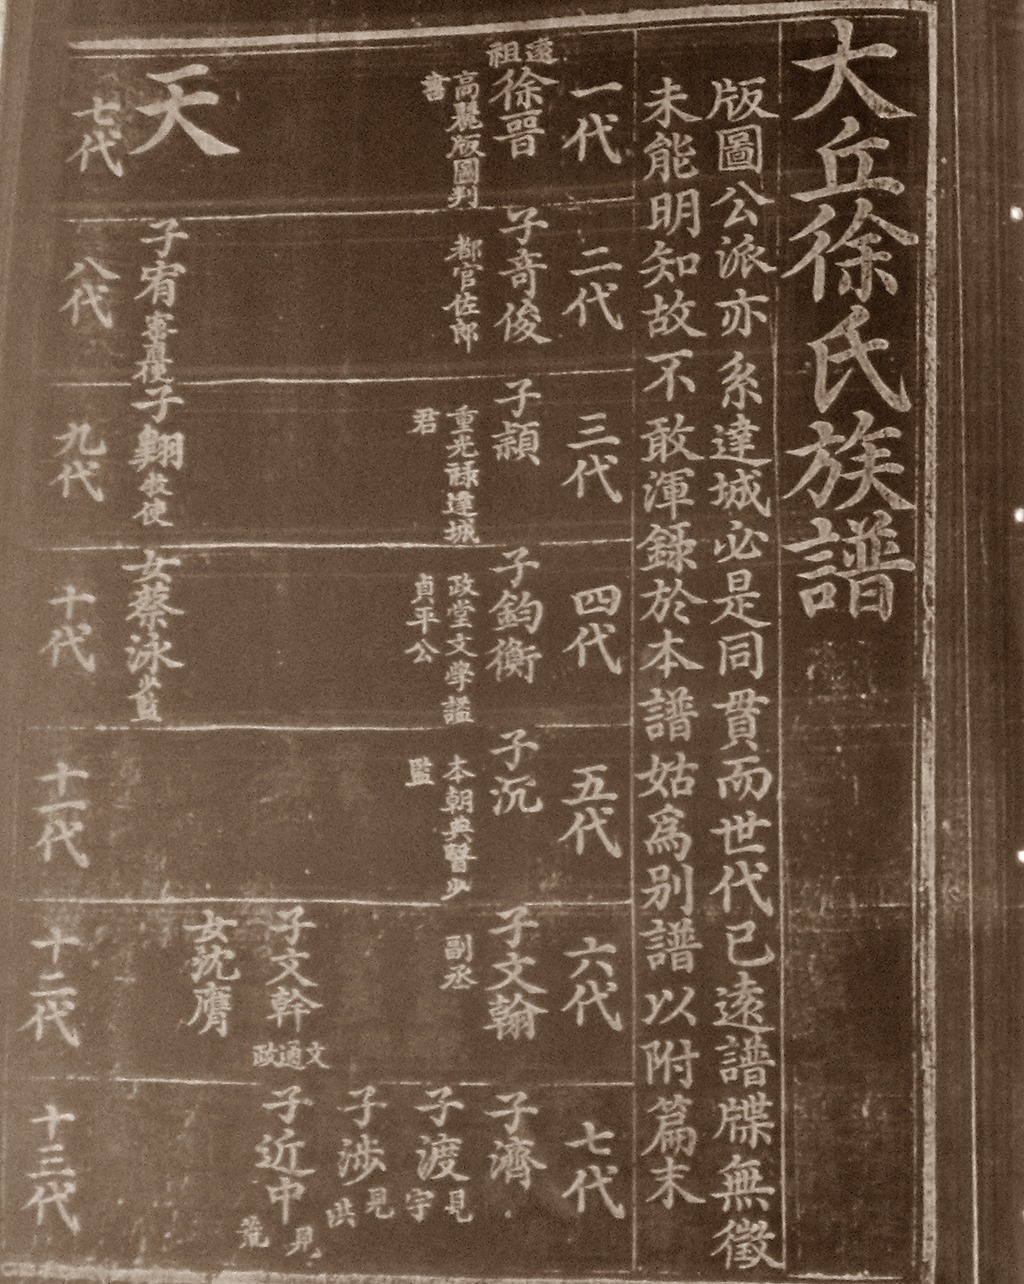 大丘徐氏族譜
版圖公派亦系達城必是同貫而世代已遠譜牒無徵
未能明知故不敢渾錄於本譜姑爲別譜以附篇末
一代
二代
三代
四代
五代
六代
七代
遠祖
徐晉
高麗版圖判
書
子奇俊
都官佐郎
子頴
重光祿達城
君
子鈞衡
政堂文學諡
貞平公
子沉
本朝典醫少
監
子文翰
副丞
子濟
子渡
見
宇
子涉
見
洪
子文幹
文通政
子近中
見
荒
女沈膺
天
子宥
子翱
牧使
女蔡泳
少監
七代
八代
九代
十代
十一代
十二代
十三代